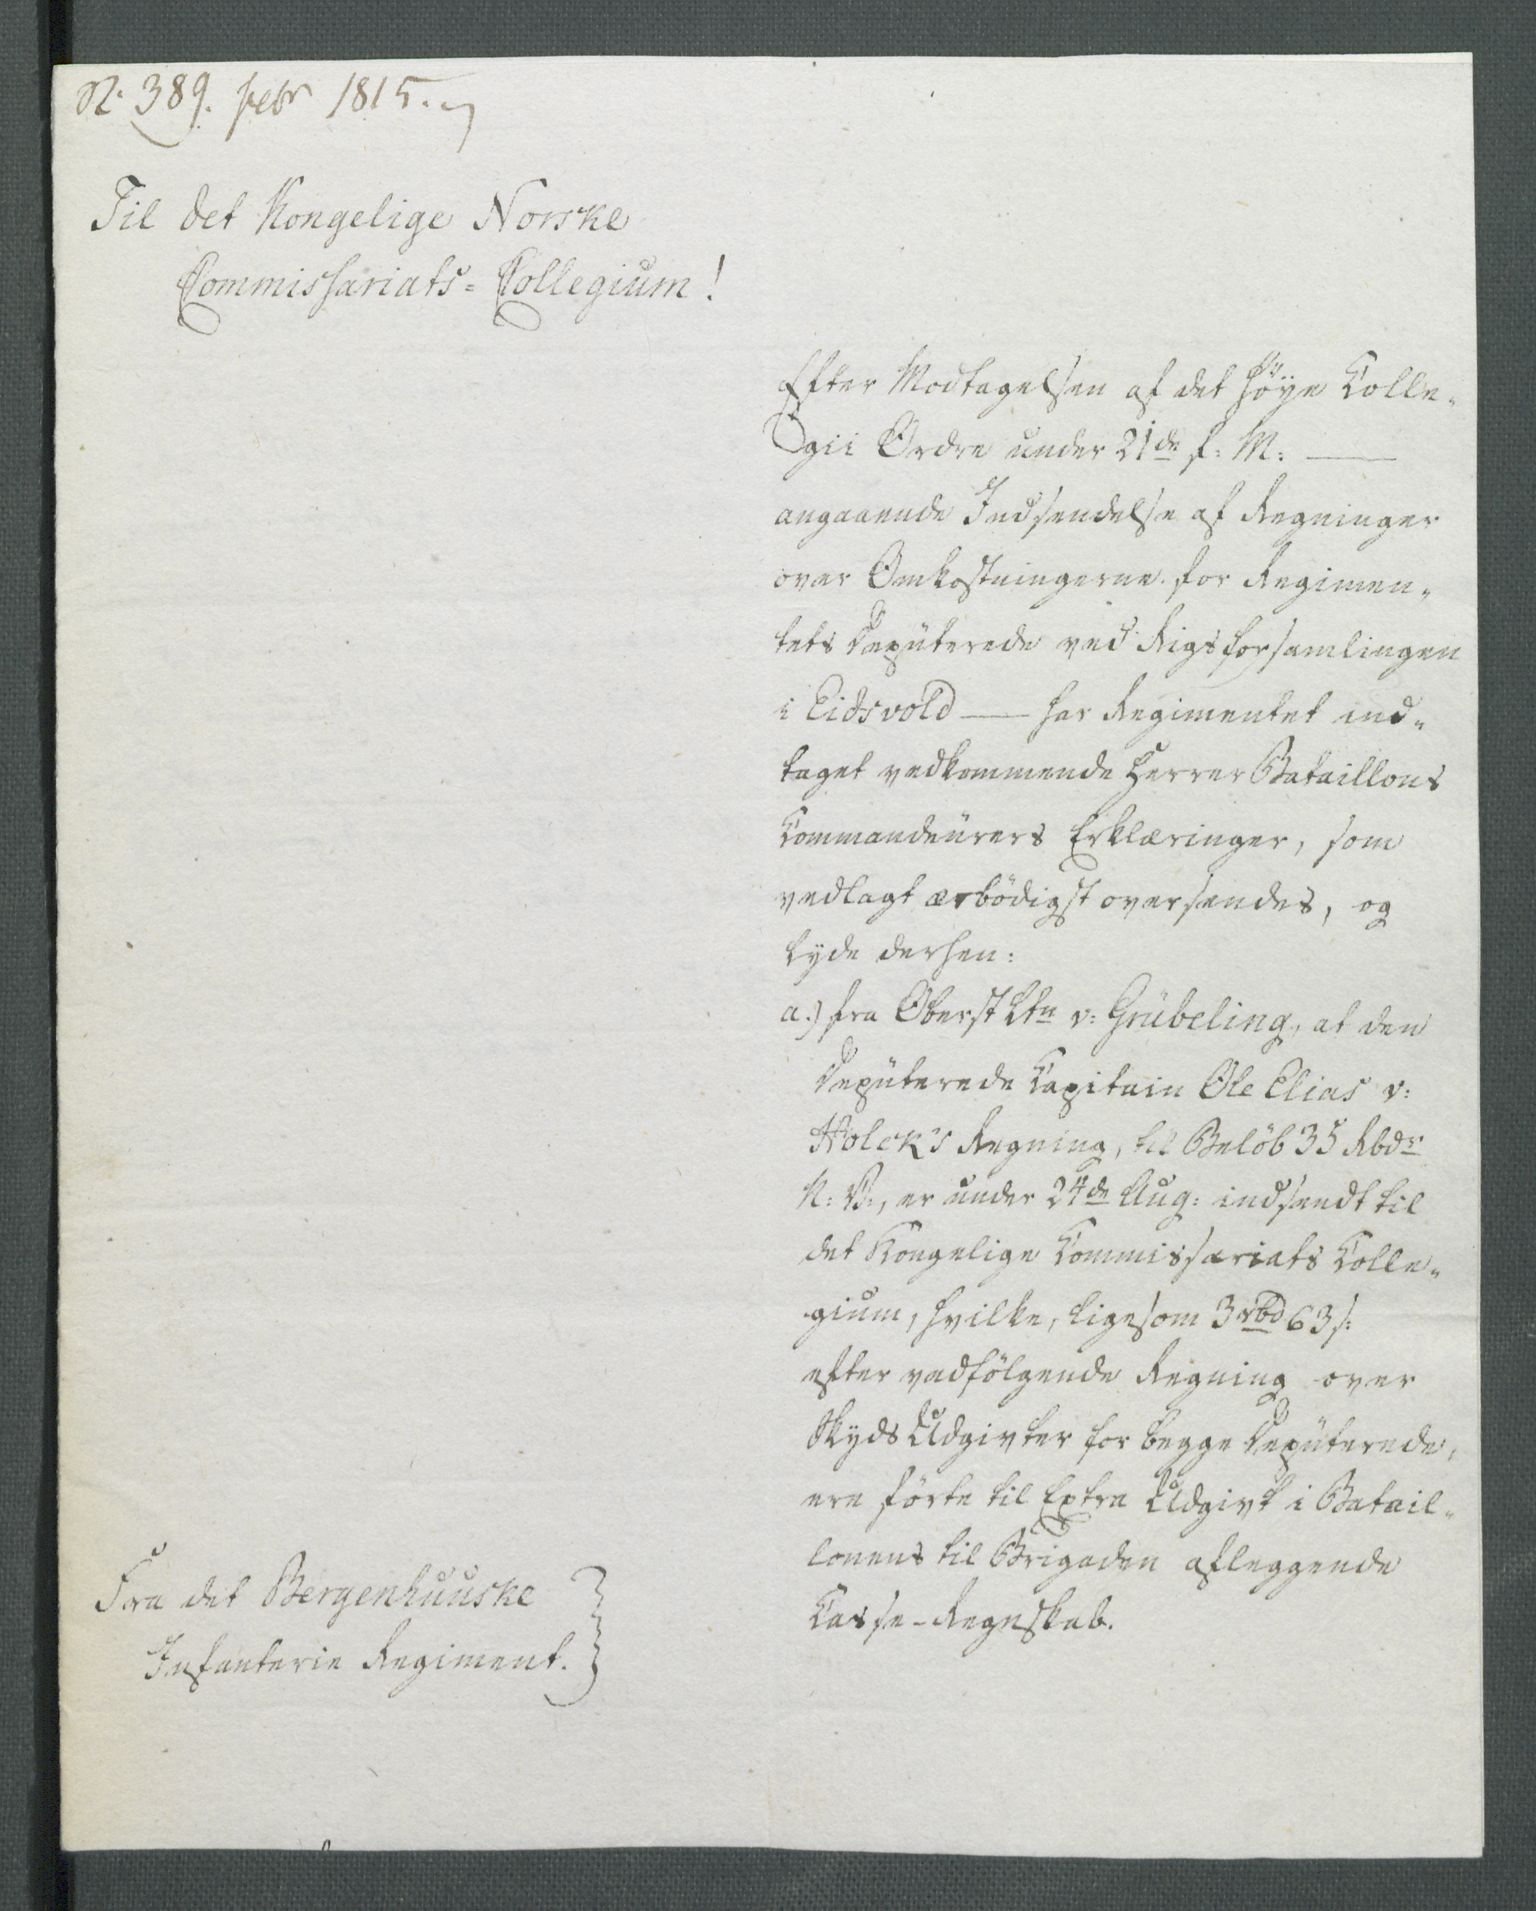 N. 389. febr 1815.
Til det Kongelige Norske
Commissariats= Collegium!
Efter Modtagelsen af det höye Colle-
gii Ordre under 21de f: M: —
angaaende Indsendelse af Regninger
over Omkostningerne for Regimen-
tets Deputerede ved Rigsforsamlingen
i Eidsvold — har Regimentet ind-
taget vedkommende Herrer Bataillons
Commandeurers Erklæringer, som
vedlagt ærbödigst oversendes, og
lyde derhen:
a.) fra Oberst Ltn v: Grübeling, at den
Deputerede Capitain Ole Elias v:
Holck's Regning, til Belöb 35 Rbdr
N: V:, er under 24de Aug: indsendt til
det Kongelige Commissariats Colle-
gium, hvilke, ligesom 3 rbd 63 s:
efter vedfölgende Regning over
Skyds Udgivter for begge Deputerede,
ere förte til Extra Udgivt i Batail-
lonens til Brigaden aflæggende
Casse-Regnskab.
Fra det Bergenhuuske
Infanterie Regiment.